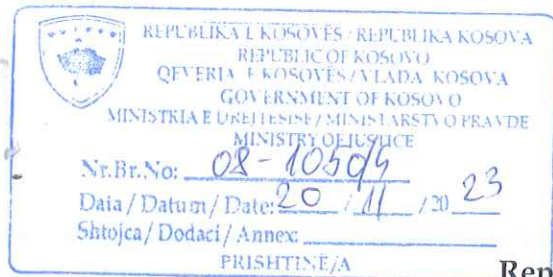 REPUBLIKA E KOSOVËS / REPUBLIKA KOSOVA
REPUBLIC OF KOSOVO
QEVERIA E KOSOVËS / VLADA KOSOVA
GOVERNMENT OF KOSOVO
MINISTRIA E DREJTËSISË / MINISTARSTVO PRAVDE
MINISTRY OF JUSTICE
Nr.Br.No: 08-1050/4
Data / Datum / Date: 20 / 11 / 20 23
Shtojca / Dodaci / Annex:
PRISHTINË/A
Rep